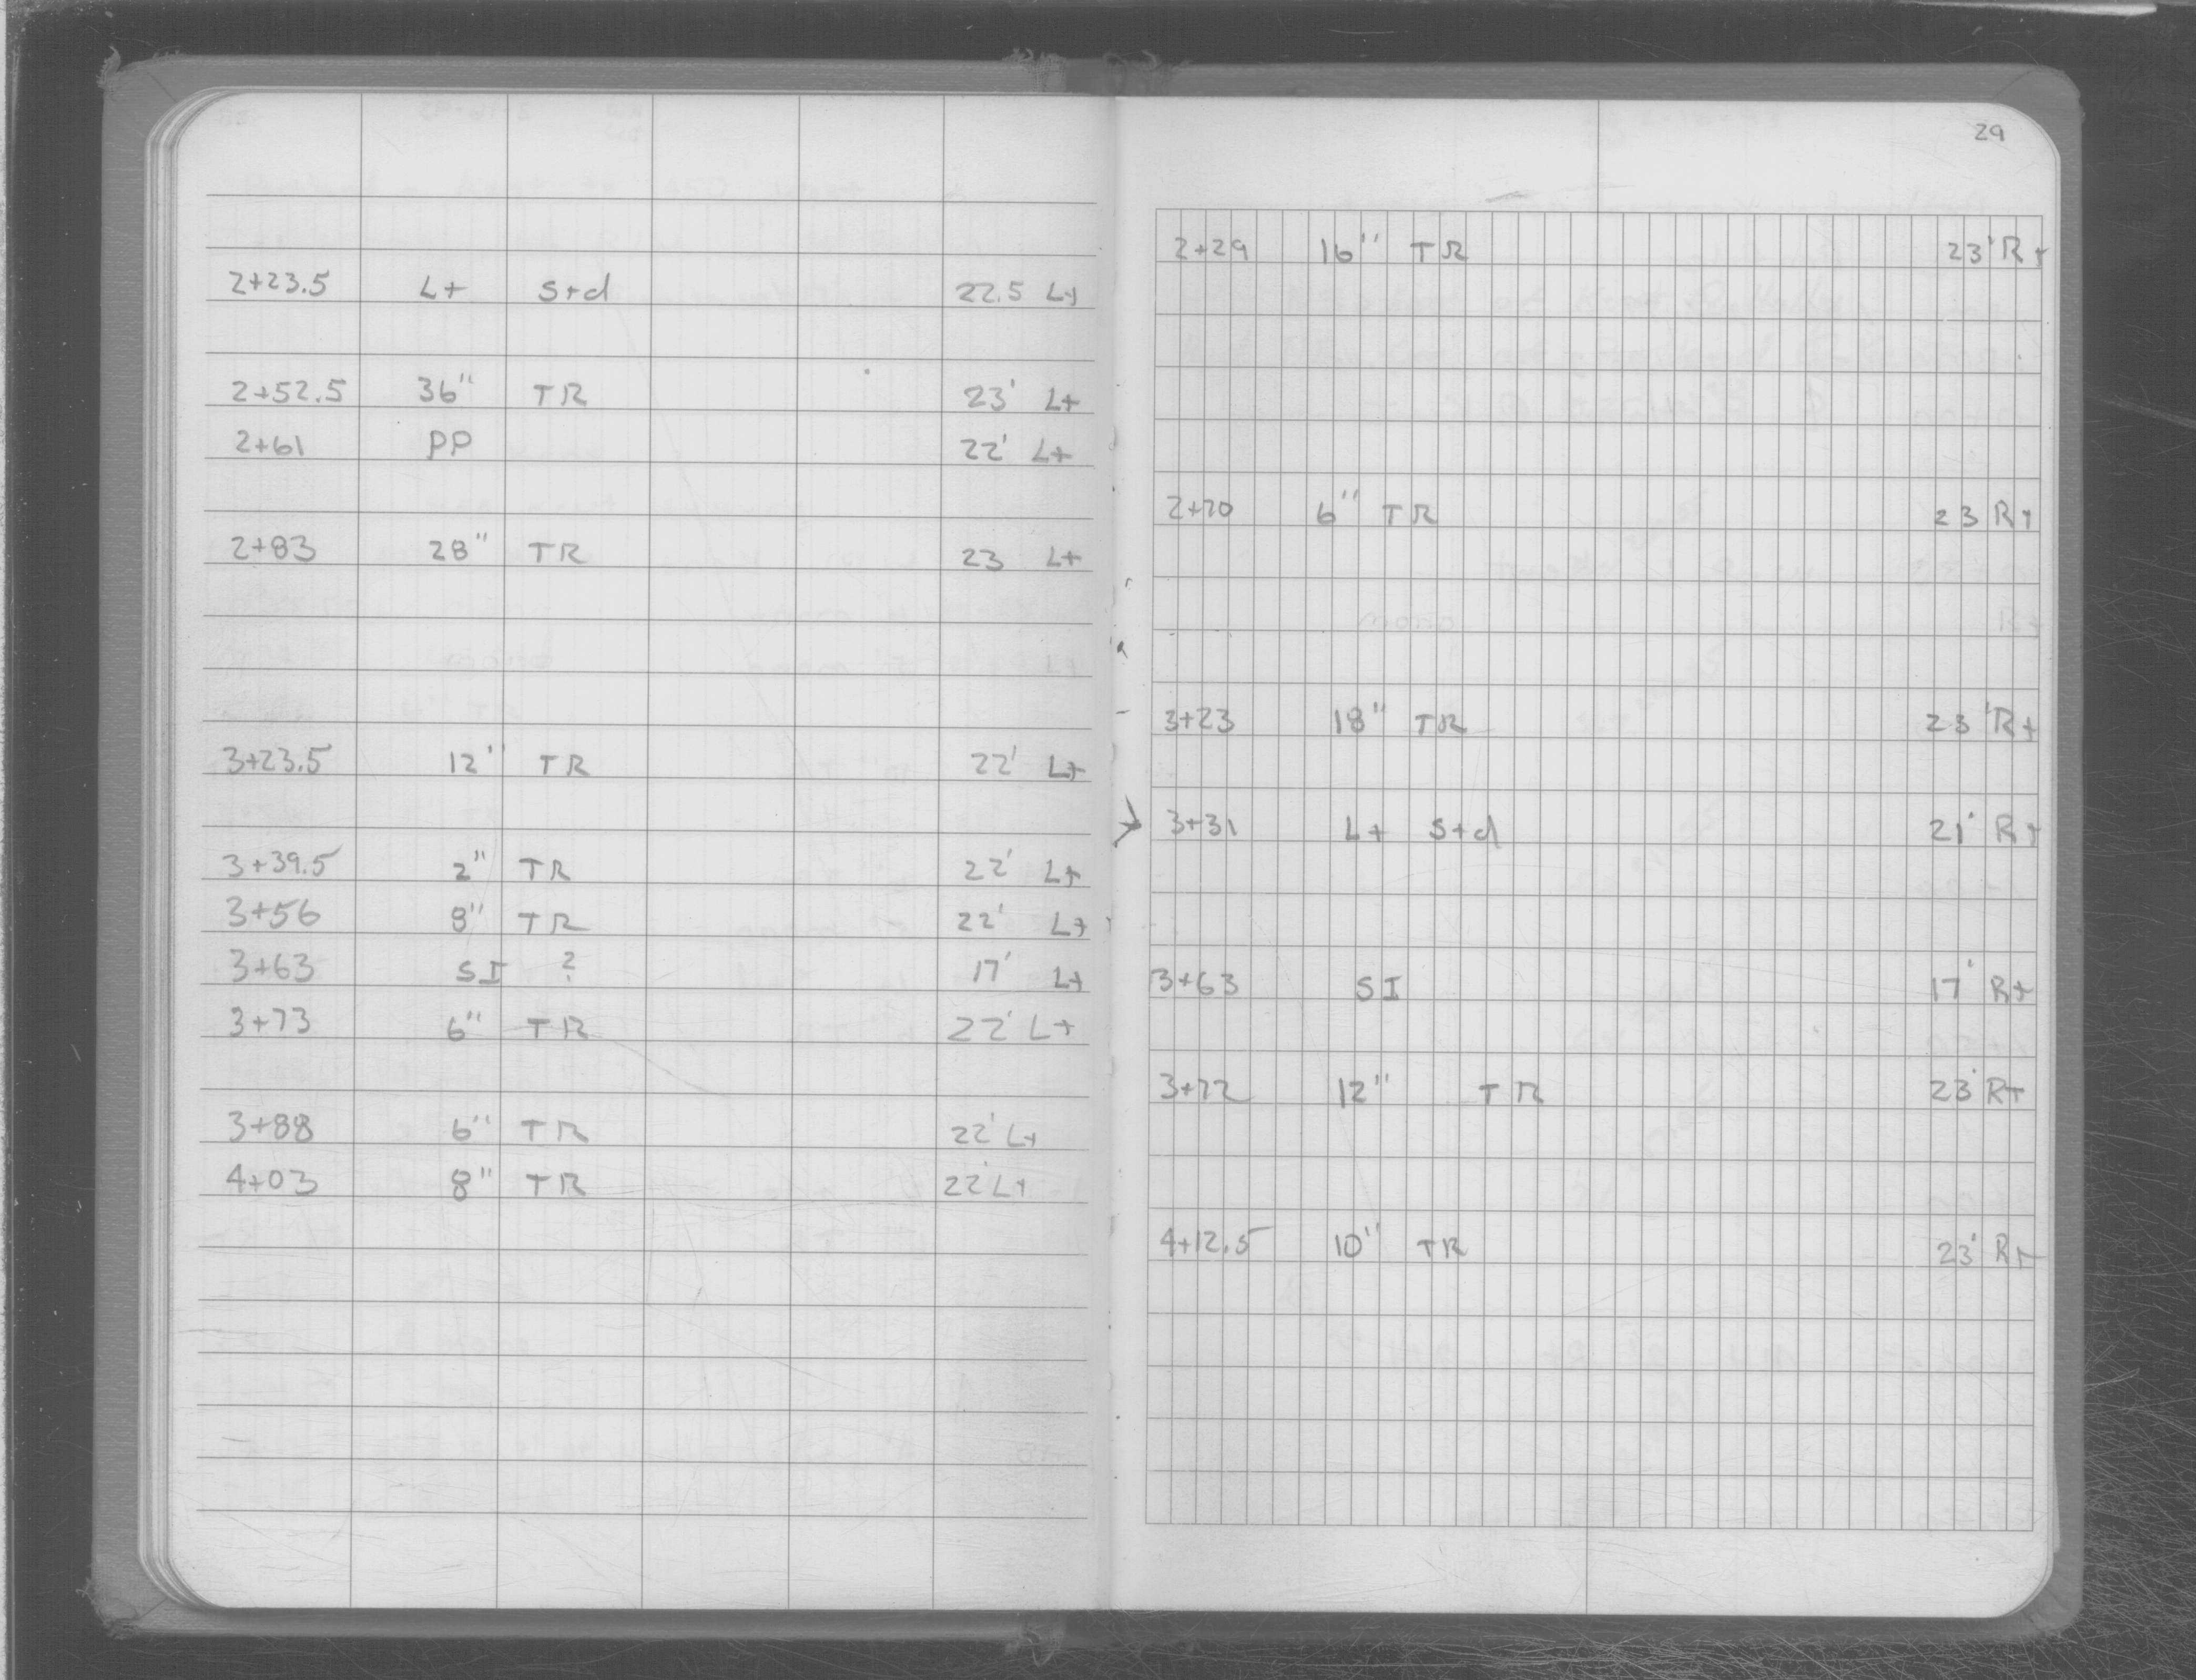 2+23.5 Lt Std 22.5 Lt
2+52.5 36" TR 23' Lt
2+61 PP 22' Lt
2+83 28" TR 23 Lt
3+23.5 12" TR 22' Lt
3+39.5 2" TR 22' Lt
3+56 8" TR 22' Lt
3+63 SI ? 17' Lt
3+73 6" TR 22' Lt
3+88 6" TR 22' Lt
4+03 8" TR 22' Lt
29
2+29 16" TR 23' Rt
2+70 6" TR 23 Rt
3+23 18" TR 23' Rt
3+31 Lt Std 21' Rt
3+63 SI 17' Rt
3+72 12" TR 23' Rt
4+12.5 10" TR 23' Rt